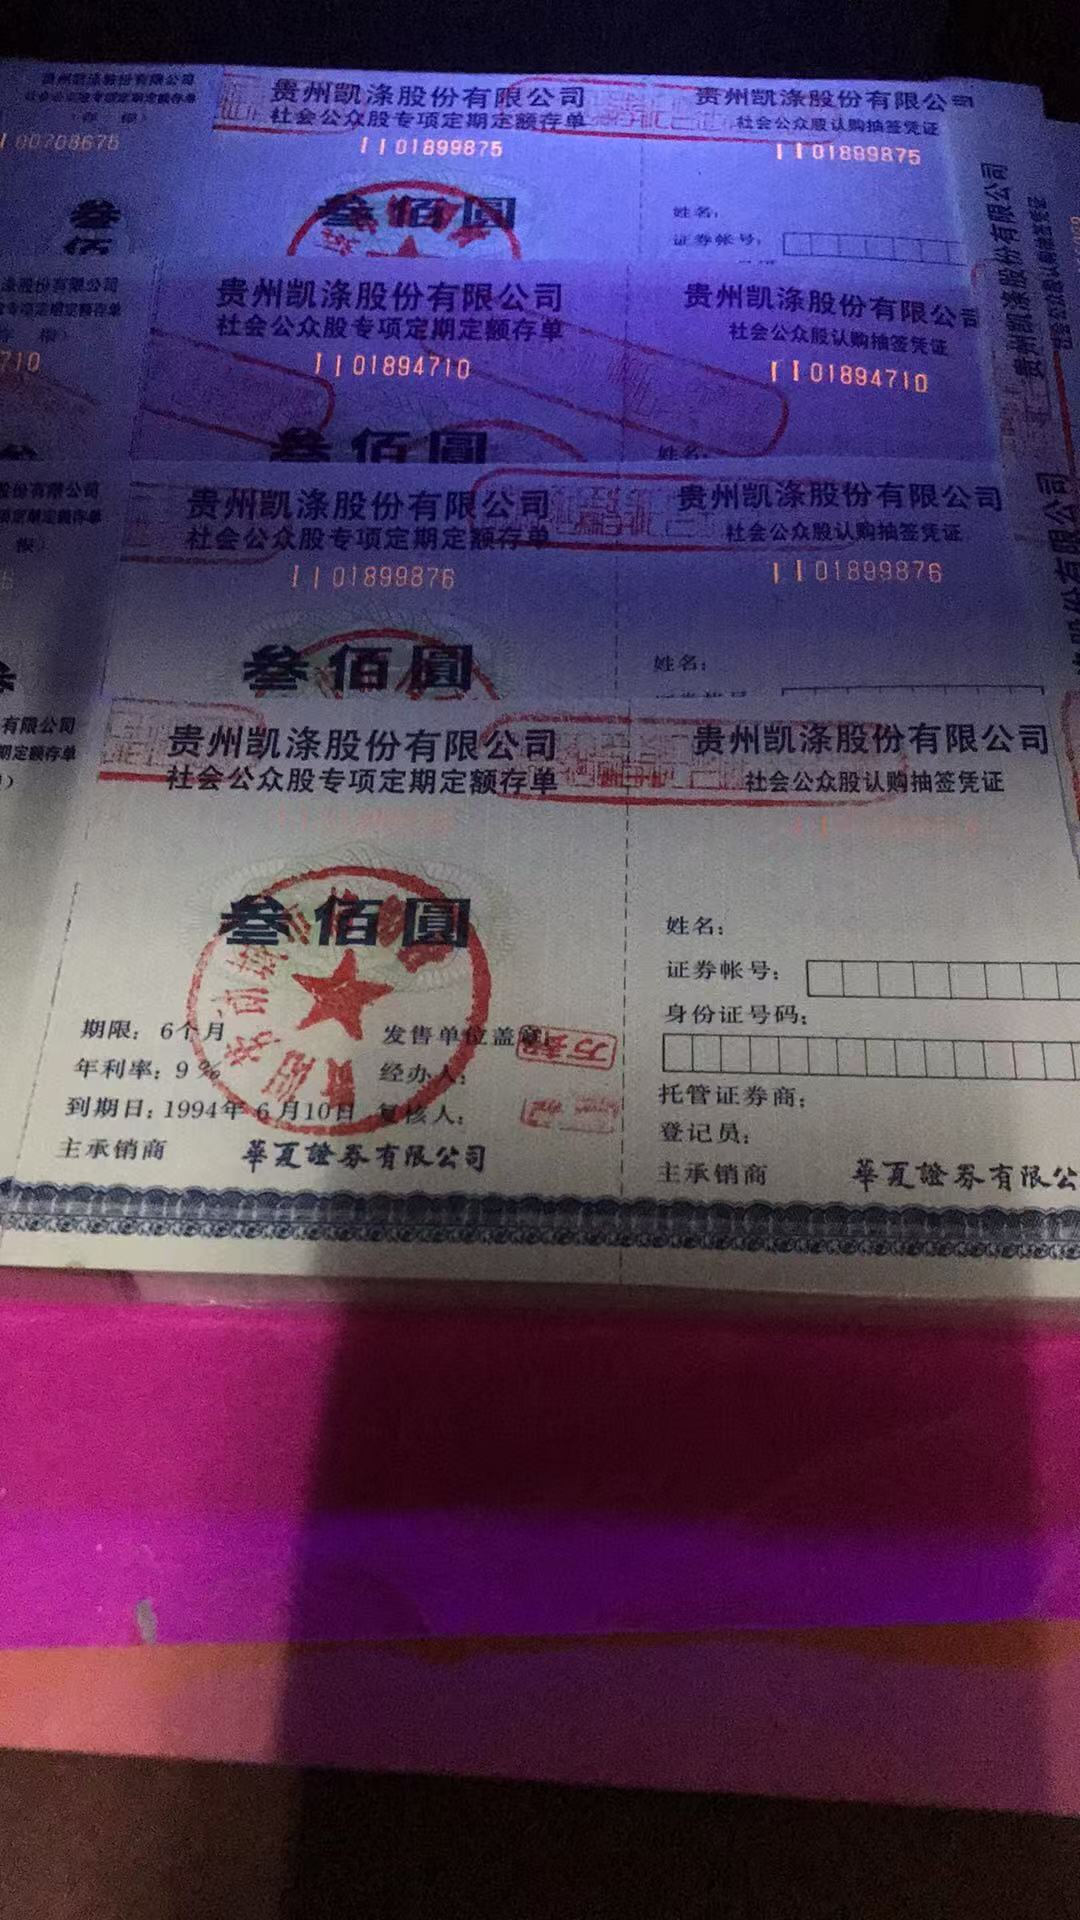 贵州凯涤股份有限公司
社会公众股专项定期定额存单
00708675
叁
贵州凯涤股份有限公司
社会公众股专项定期定额存单
01899875
叁佰圆
贵州凯涤股份有限公司
社会公众股认购抽签凭证
01899875
姓名：
证券帐号：
贵州凯涤股份有限公司
社会公众股专项定期定额存单
01894710
叁佰圆
贵州凯涤股份有限公司
社会公众股认购抽签凭证
01894710
姓名：
710
贵州凯涤股份有限公司
贵州凯涤股份有限公司
社会公众股专项定期定额存单
01899876
叁佰圆
贵州凯涤股份有限公司
社会公众股认购抽签凭证
01899876
姓名：
股份有限公司
有限公司
期定额存单
贵州凯涤股份有限公司
社会公众股专项定期定额存单
叁佰圆
期限：6个月
年利率：9%
到期日：1994年6月10日
主承销商 華夏證券有限公司
发售单位盖章：
经办人：
复核人：
贵州凯涤股份有限公司
社会公众股认购抽签凭证
姓名：
证券帐号：
身份证号码：
托管证券商：
登记员：
主承销商 華夏證券有限公